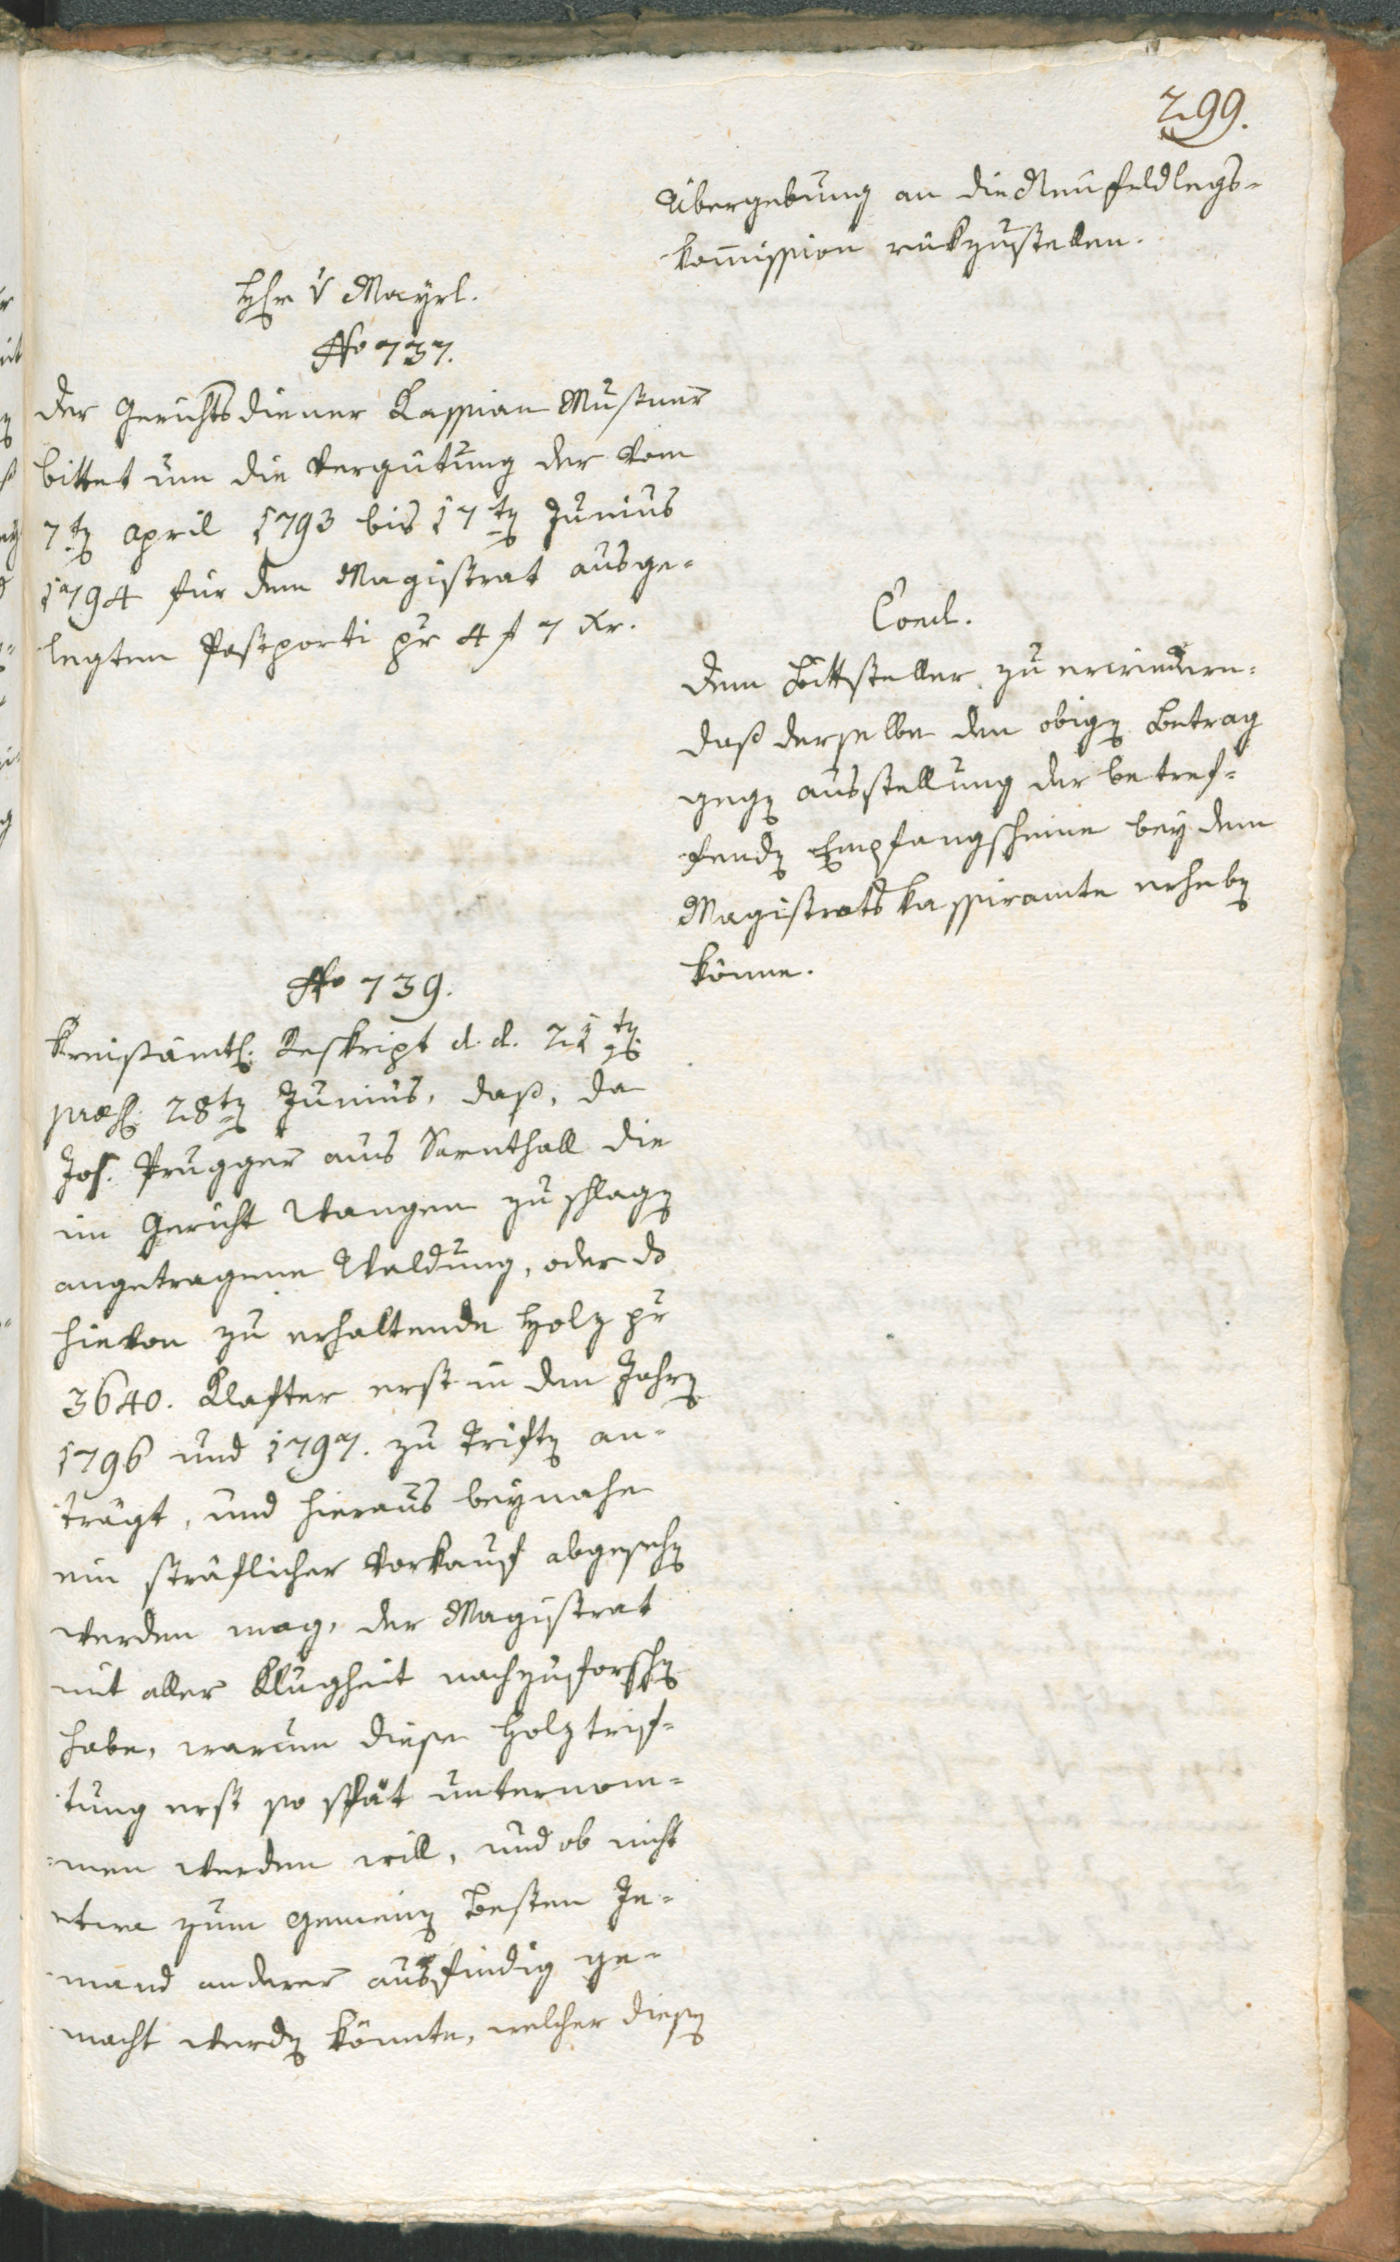 299.
Übergebung an die Neufeldlegs-
kom̅ission rükzustellen.
Hr v Mayrl.
No 737.
Der Gerichtsdiener Kassian Mußner
bittet um die Vergütung der vom
7ten April 1793 bis 17ten Junius
1794 für dem Magistrat ausge-
legten Postporti pr 4 f 7 Xr.
Concl.
Dem Bittsteller zu erwiedern:
daß derselbe den obigen Betrag
gegen Ausstellung der betref-
fenden Empfangscheine bey dem
Magistratskassieramte erheben
könne.
No 739.
Kreisämtl. Reskript d. d. 21ten
præs. 28ten Junius, daß, da
Jos. Prugger aus Sarnthall die
im Gericht Wangen zu schlagen
angetragene Waldung, oder ds
hievon zu erhaltende Holz pr
3640. Klafter erst in den Jahren
1796 und 1797. zu Triften an-
trägt, und hieraus beynahe
ein sträflicher Vorkauf abgesehen
werden mag, der Magistrat
mit aller Klugheit nachzuforschen
habe, warum diese Holztrif-
tung erst so spät unternom-
men werden will, und ob nicht
etwa zum gemeinen Besten Je-
mand anderer ausfindig ge-
macht werden könnte, welcher diesen